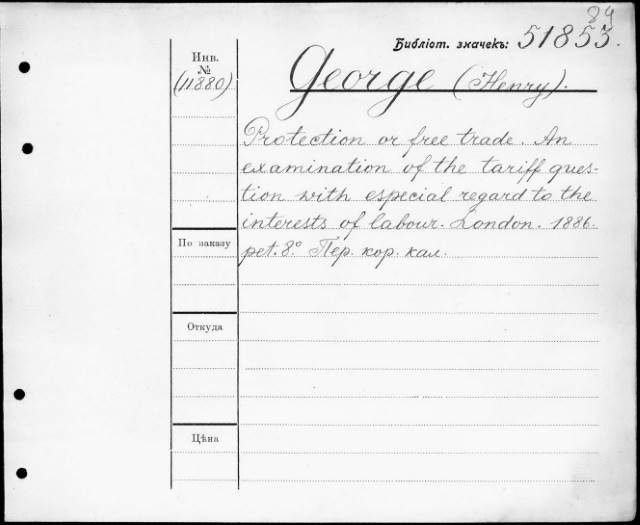 84
Библіот. значекъ: 51853.
Инв.
№
(11880)
George (Henry).
Protection or free trade. An
examination of the tariff ques-
tion with especial regard to the
interests of labour. London. 1886.
pet. 8.° Пер. кор. кал.
По заказу
Откуда
Цѣна